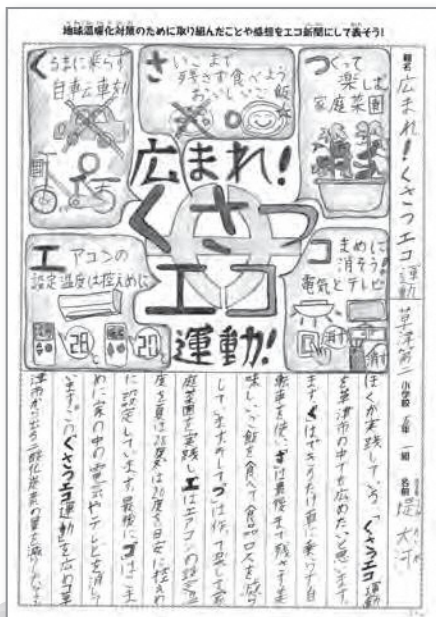 地球温暖化対策のために取り組んだことや感想をエコ新聞にして表そう!
題名 広まれ!くさつエコ運動
草津第二小学校 5年 一組 名前 堤 大河
くるまに乗らず
自転車を利
さいごまで
残さず食べよう
おいしいご飯
つくって
楽しむ
家庭菜園
広まれ!
くさつ
エコ
運動!
エアコンの
設定温度は控えめに
28℃
20℃
コまめに
消そう!
電気とテレビ
消す
消す
ぼくが実践している、「くさつエコ運動
を草津市の中でも広めたいと思います。
ます、くはできるだけ車に乗らず自
転車を使い、さは最後まで残さず美
味しいご飯を食べて食品ロスを減ら
しています。そしてつは、作って楽しむ家
庭菜園を実践し、エはエアコンの設定温
度を夏は28度冬は20度を目安に控えめ
に設定しています。最後に、コはこま
めに家の中の電気やテレビを消して
います。この「くさつエコ運動」を広め、草
津市から出る二酸化炭素の量を減らしたい